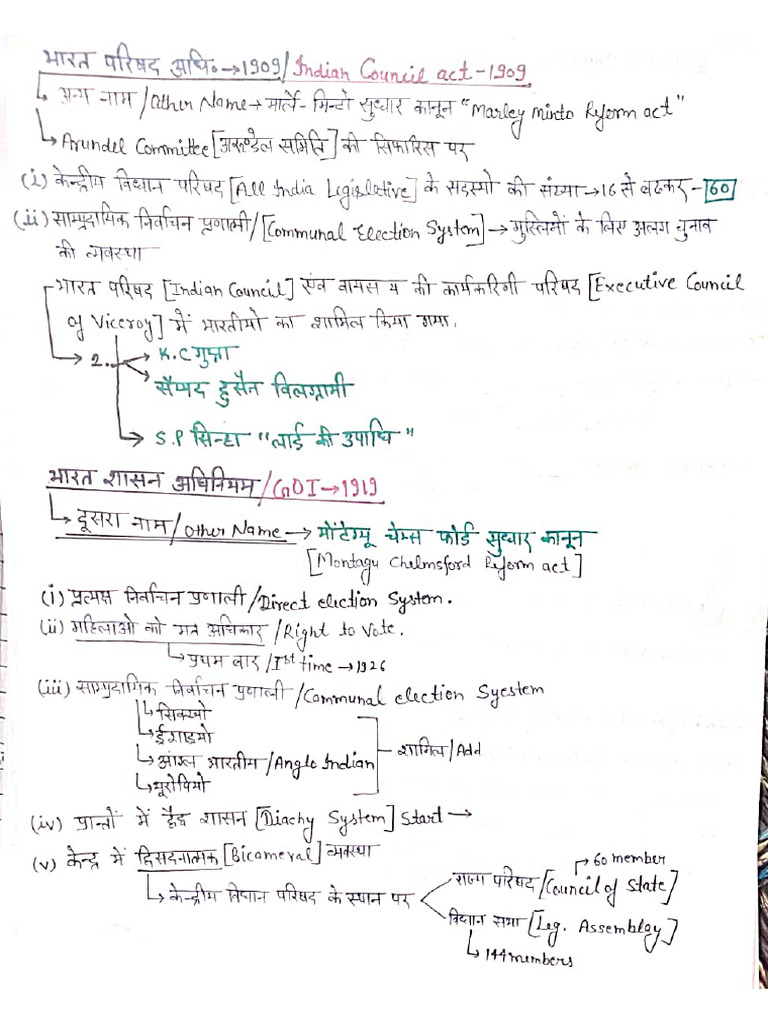 भारत परिषद अधि०→1909/Indian Council act-1909
अन्य नाम/Other Name→ मार्ले-मिन्टो सुधार कानून "Marley Minto Reform act"
Arundel Committee[अरूण्डेल समिति] की सिफारिस पर
(i) केन्द्रीय विधान परिषद [All India Legislative] के सदस्यो की संख्या→16 से बढकर-60
(ii) साम्प्रदायिक निर्वाचन प्रणाली/[Communal Election System]→ मुस्लिमों के लिए अलग चुनाव
की व्यवस्था
भारत परिषद [Indian Council] एंव वायस य की कार्यकारिणी परिषद [Executive Council
of Viceroy] में भारतीयो का शामिल किया गया.
2. K.C गुप्ता
सैय्यद हुसैन विलग्रामी
S.P सिन्हा "लार्ड की उपाधि"
भारत शासन अधिनियम/GOI→1919
दूसरा नाम/Other Name→ मोंटेग्यू चेम्स फोर्ड सुधार कानून
[Montagu Chelmsford Reform act]
(i) प्रत्यक्ष निर्वाचन प्रणाली/Direct election System.
(ii) महिलाओ को मत अधिकार/Right to Vote.
प्रथम बार/Ist time→1926
(iii) साम्प्रदायिक निर्वाचन प्रणाली/Communal election Syestem
सिक्खो
ईसाइयो
आंग्ल भारतीय/Anglo Indian शामिल/Add
यूरोपियो
(iv) प्रान्तों में द्वैध शासन [Diachy System] Start→
(v) केन्द्र में द्विसदनात्मक [Bicameral] व्यवस्था
60 member
केन्द्रीय विधान परिषद के स्थान पर राज्य परिषद/[Council of State]
विधान सभा [Leg. Assemblay]
144 members